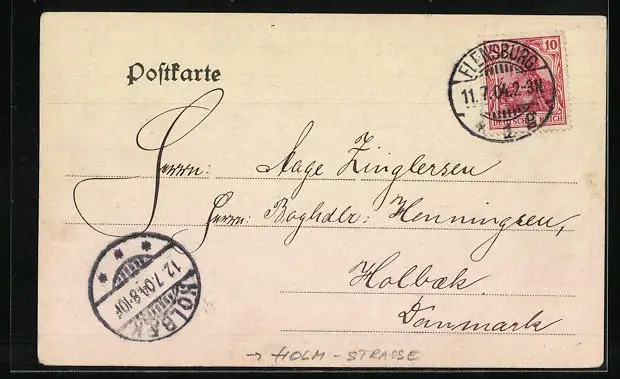 Postkarte
10
DEUTSCHES REICH
FLENSBURG
11.7.04.2-3N
* 2 g
Herrn: Aage Zinglersen
Herrn: Boghdlr: Henningsen,
Holbæk
Danmark
HOLBÆK
12.7.04.8-10F
→ HOLM - STRASSE